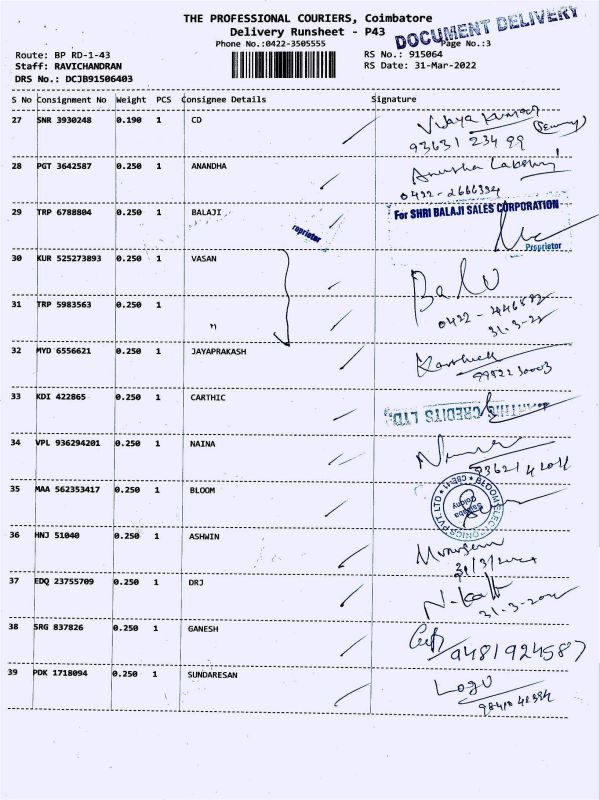 THE PROFESSIONAL COURIERS, Coimbatore
Delivery Runsheet - P43
DOCUMENT DELIVERY
Phone No.:0422-3505555
Page No.:3
Route: BP RD-1-43
RS No.: 915064
Staff: RAVICHANDRAN
RS Date: 31-Mar-2022
DRS No.: DCJB91506403
S No Consignment No Weight PCS Consignee Details Signature
27 SNR 3930248 0.190 1 CD
Vijaya Kumar
93631 234 99
28 PGT 3642587 0.250 1 ANANDHA
0422-2666334
29 TRP 6788804 0.250 1 BALAJI
For SHRI BALAJI SALES CORPORATION
roprietor
Proprietor
30 KUR 525273893 0.250 1 VASAN
Balu
31 TRP 5983563 0.250 1 "
31-3-22
32 MYD 6556621 0.250 1 JAYAPRAKASH
33 KDI 422865 0.250 1 CARTHIC
CREDITS LTD.
34 VPL 936294201 0.250 1 NAINA
35 MAA 562353417 0.250 1 BLOOM
BLOOM ELECTRONICS PVT. LTD
CBE-11
Saibaba
Colony
36 HNJ 51040 0.250 1 ASHWIN
37 EDQ 23755709 0.250 1 DRJ
38 SRG 837826 0.250 1 GANESH
9481924587
39 PDK 1718094 0.250 1 SUNDARESAN
Logu